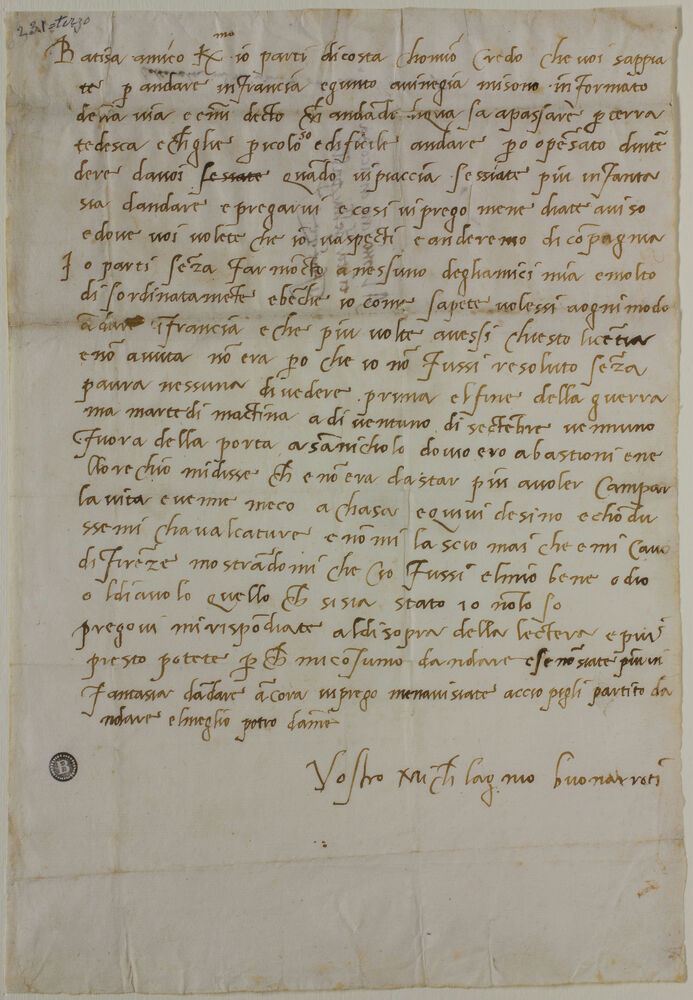 Batista amico k̅x̅mo io parti dicosta chomio credo che voi sappia
te p andare infrancia egunto avinegia misono informato
della via e emi decto ch andādo hova sa apassare p terra
tedesca e ch glie pericoloso edificile andare po ōpēsato dintē
dere davoi sessiate quādo vipiaccia sessiate piu infanta
sia dandare e pregarvi e cosi vi prego mene diate aviso
e dove voi volete che io vaspecti e anderemo di cōpagnia
Io parti sēza far mocto a nessuno degliamici mia e molto
disordinatamēte e bēche io come sapete volessi a ogni modo
ādare ī francia e che piu volte avessi chiesto licētia
e nō avuta nō era po che io nō fussi resoluto sēza
paura nessuna di vedere prima el fine della guerra
ma martedi mactina a di ventuno di sectēbre venne uno
fuora della porta a sā nicholo dov io ero a bastioni e ne
llorechio mi disse ch e nō era da star piu a voler campar
la vita e venne meco a chasa e quivi desino e chōdu
ssemi chavalcature e nō mi lascio mai che e mi cavo
di firēze mostrādomi che cio fussi el mio bene o dio
o ldiavolo quello ch si sia stato io nōlo so
pregovi mi rispōdiate al disopra della lectera e piu
presto potete p ch mi cōsumo dandare e se nō siate piu ī
fantasia dādare ācora vi prego me navisiate accio pigli partito da
ndare el meglio potro da me
Vostro Michelagniolo buonarroti
B